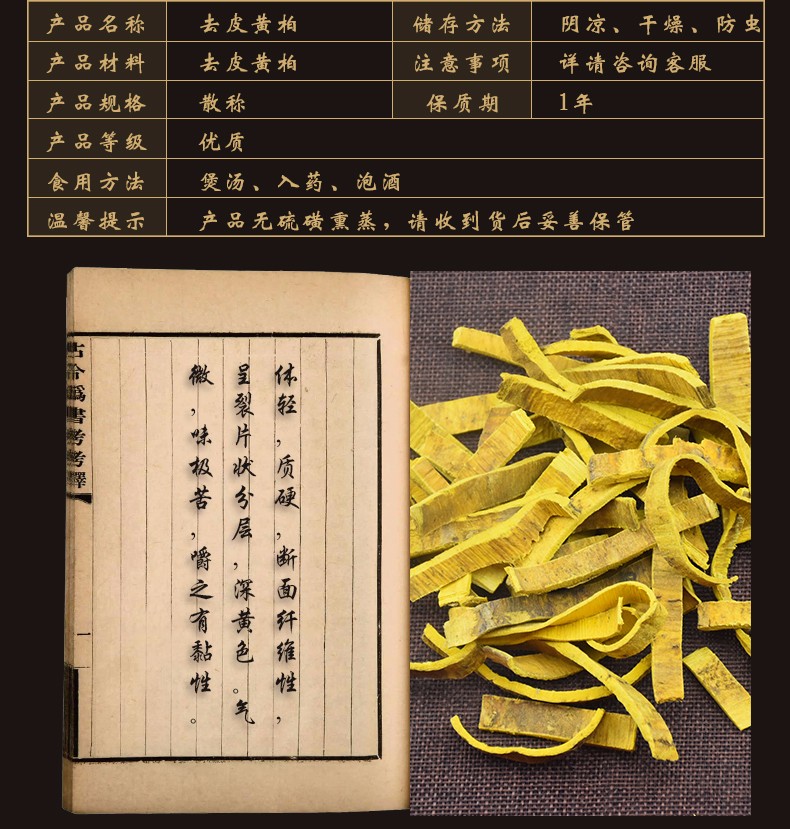 产品名称 去皮黄柏 储存方法 阴凉、干燥、防虫
产品材料 去皮黄柏 注意事项 详请咨询客服
产品规格 散称 保质期 1年
产品等级 优质
食用方法 煲汤、入药、泡酒
温馨提示 产品无硫磺熏蒸，请收到货后妥善保管
体轻，质硬，断面纤维性，
呈裂片状分层，深黄色。气
微，味极苦，嚼之有黏性。
古今偽書考考釋
一